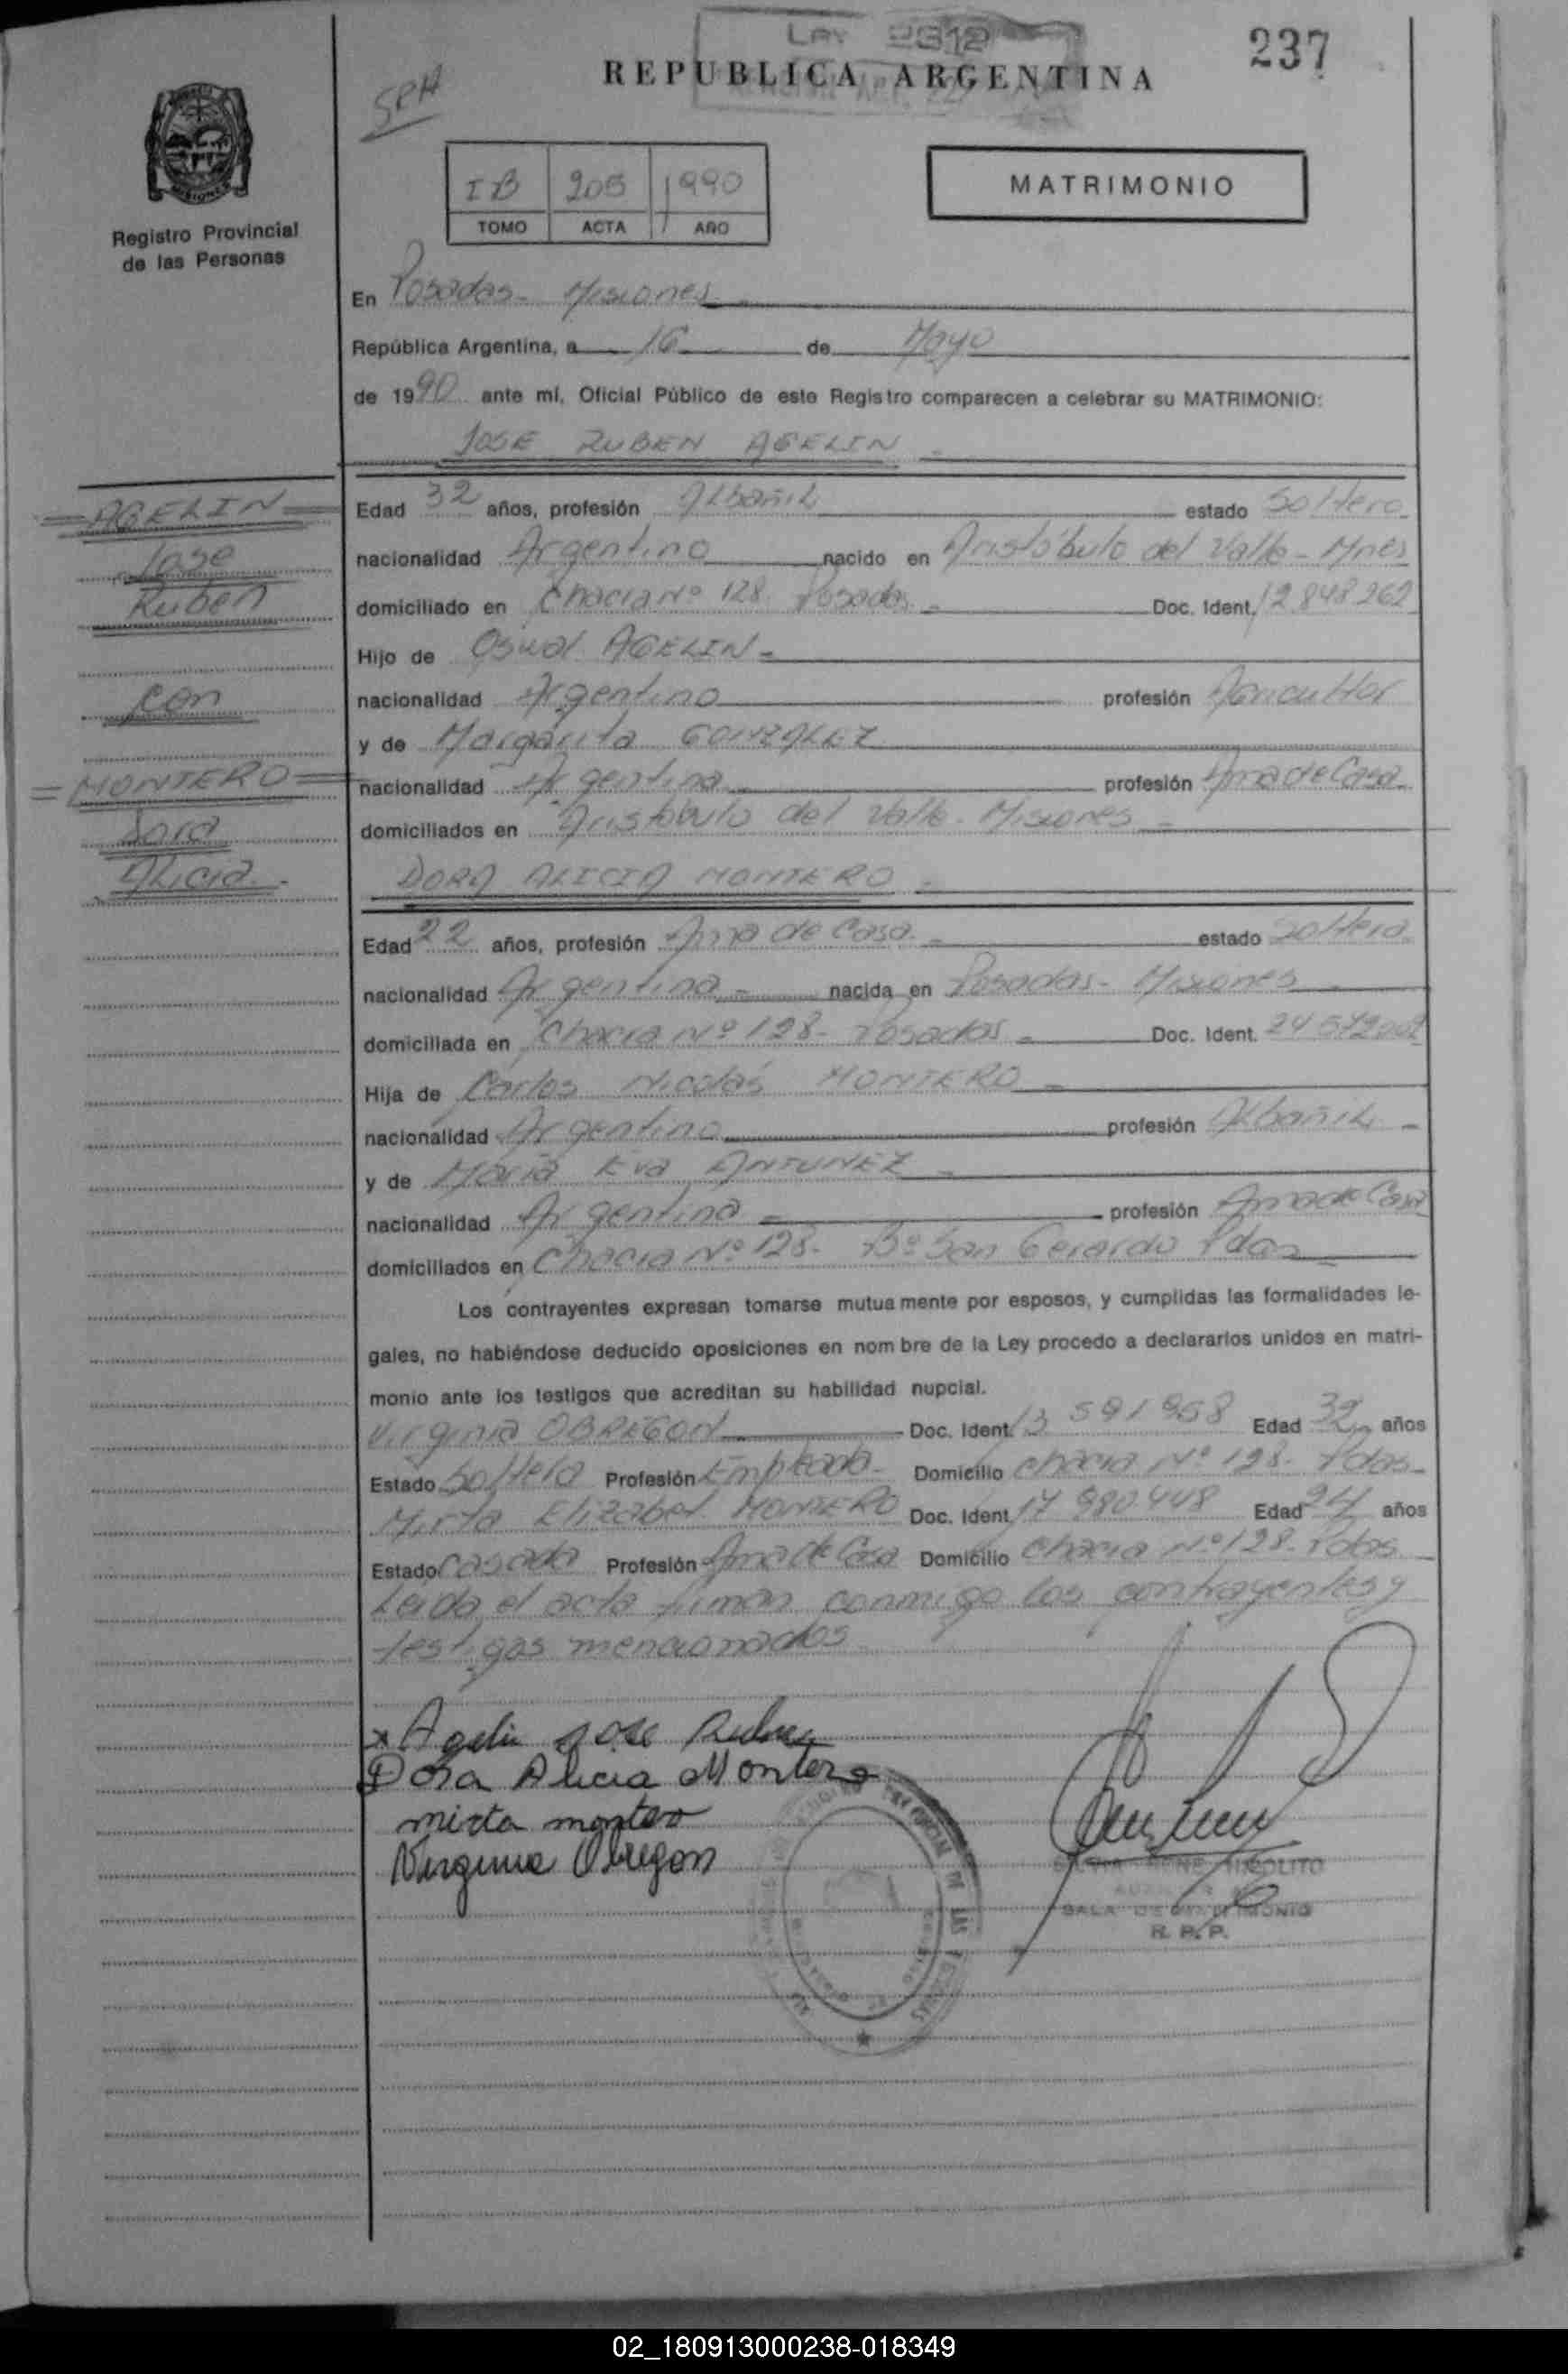 LEY 2312
237
REPUBLICA ARGENTINA
IB 205 1990
TOMO ACTA AÑO
MATRIMONIO
MISIONES
Registro Provincial
de las Personas
En Posadas - Misiones
República Argentina, a 16 de Mayo
de 1990 ante mí, Oficial Público de este Registro comparecen a celebrar su MATRIMONIO:
JOSE RUBEN AGELIN
=AGELIN=
Jose
Ruben
con
=MONTERO=
Dora
Alicia
Edad 32 años, profesión Albañil estado Soltero
nacionalidad Argentino nacido en Aristóbulo del Valle - Mnes
domiciliado en Chacra Nº 128 Posadas Doc. Ident. 12848262
Hijo de Oswal AGELIN
nacionalidad Argentino profesión Agricultor
y de Margarita GONZALEZ
nacionalidad Argentina profesión Ama de Casa
domiciliados en Aristóbulo del Valle - Misiones
DORA ALICIA MONTERO
Edad 22 años, profesión Ama de Casa estado Soltera
nacionalidad Argentina nacida en Posadas - Misiones
domiciliada en Chacra Nº 128 - Posadas Doc. Ident.
Hija de Carlos Nicolás MONTERO
nacionalidad Argentino profesión Albañil
y de María Eva ANTUNEZ
nacionalidad Argentina profesión Ama de Casa
domiciliados en Chacra Nº 128 - Bº San Gerardo Pdas
Los contrayentes expresan tomarse mutuamente por esposos, y cumplidas las formalidades le-
gales, no habiéndose deducido oposiciones en nombre de la Ley procedo a declararlos unidos en matri-
monio ante los testigos que acreditan su habilidad nupcial.
Virginia OBREGON Doc. Ident. 13 591958 Edad 32 años
Estado Soltera Profesión Empleada Domicilio Chacra Nº 128 - Pdas
Mirta Elizabet MONTERO Doc. Ident. 17 980448 Edad 24 años
Estado Casada Profesión Ama de Casa Domicilio Chacra Nº 128 - Pdas
Leida el acta firman conmigo los contrayentes y
testigos mencionados
x Agelin Jose Ruben
Dora Alicia Montero
mirta montero
Virginia Obregon
RENE HIPOLITO
SALA DE MATRIMONIO
R. P. P.
02_180913000238-018349